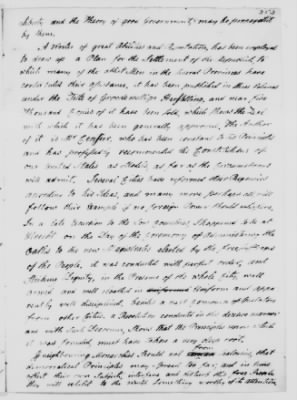 liberty and the Theory of good Government may be propagated
by them.
A Writer of great abilities and Reputation, has been employed
to draw up a Plan for the Settlement of the Republick, to
which many of the ablest Men in the several Provinces have
contributed their assistance, it has been published in three Volumes
under the Title of and near five
thousand of it have been sold, which
with what it has been generally approved. The Author
of it is Mr Cerisier, who has been constant in his Principles
and has professedly recommended the Constitutions of
our United States as Models, as far as the Circumstances
will admit. Several Cities have reformed their Regencies
according to his Ideas, and many more perhaps will
follow their Example if no foreign Power should interfere.
In a late Excursion to the Low Countries, I happened to be at
Utrecht on the Day of the Ceremony of Administering the
Oaths to the new Magistrates elected by the free
of the People, it was conducted with perfect order, and
Dignity, in the Presence of the whole City, well
armed and well cloathed in Uniform and
well disciplined, besides a vast concourse of Spectators
from other Cities. a Revolution conducted in this decisive manner
and with such Decorum, shows that the Principles upon which
it was founded, must have taken a very deep root.
If neighbouring Monarchs should not from that
democratical Principles may spread too far, and in time
affect their own Subjects, interfere and disturb this free People,
they will exhibit to the World something worthy of its attention